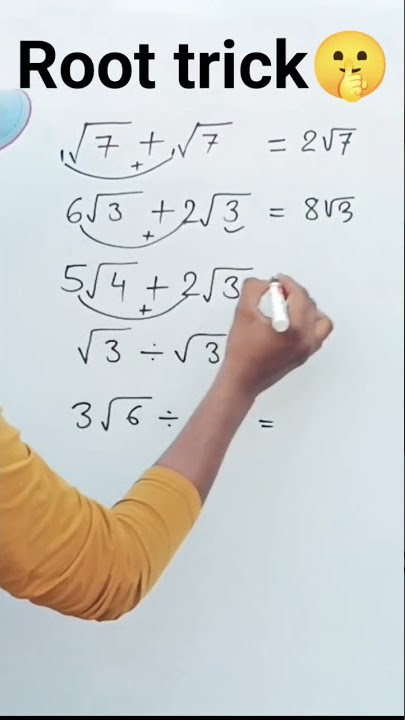 Root trick🤫
1√7 + 1√7 = 2√7
+
6√3 + 2√3 = 8√3
+
5√4 + 2√3
+
√3 ÷ √3
3√6 ÷ =